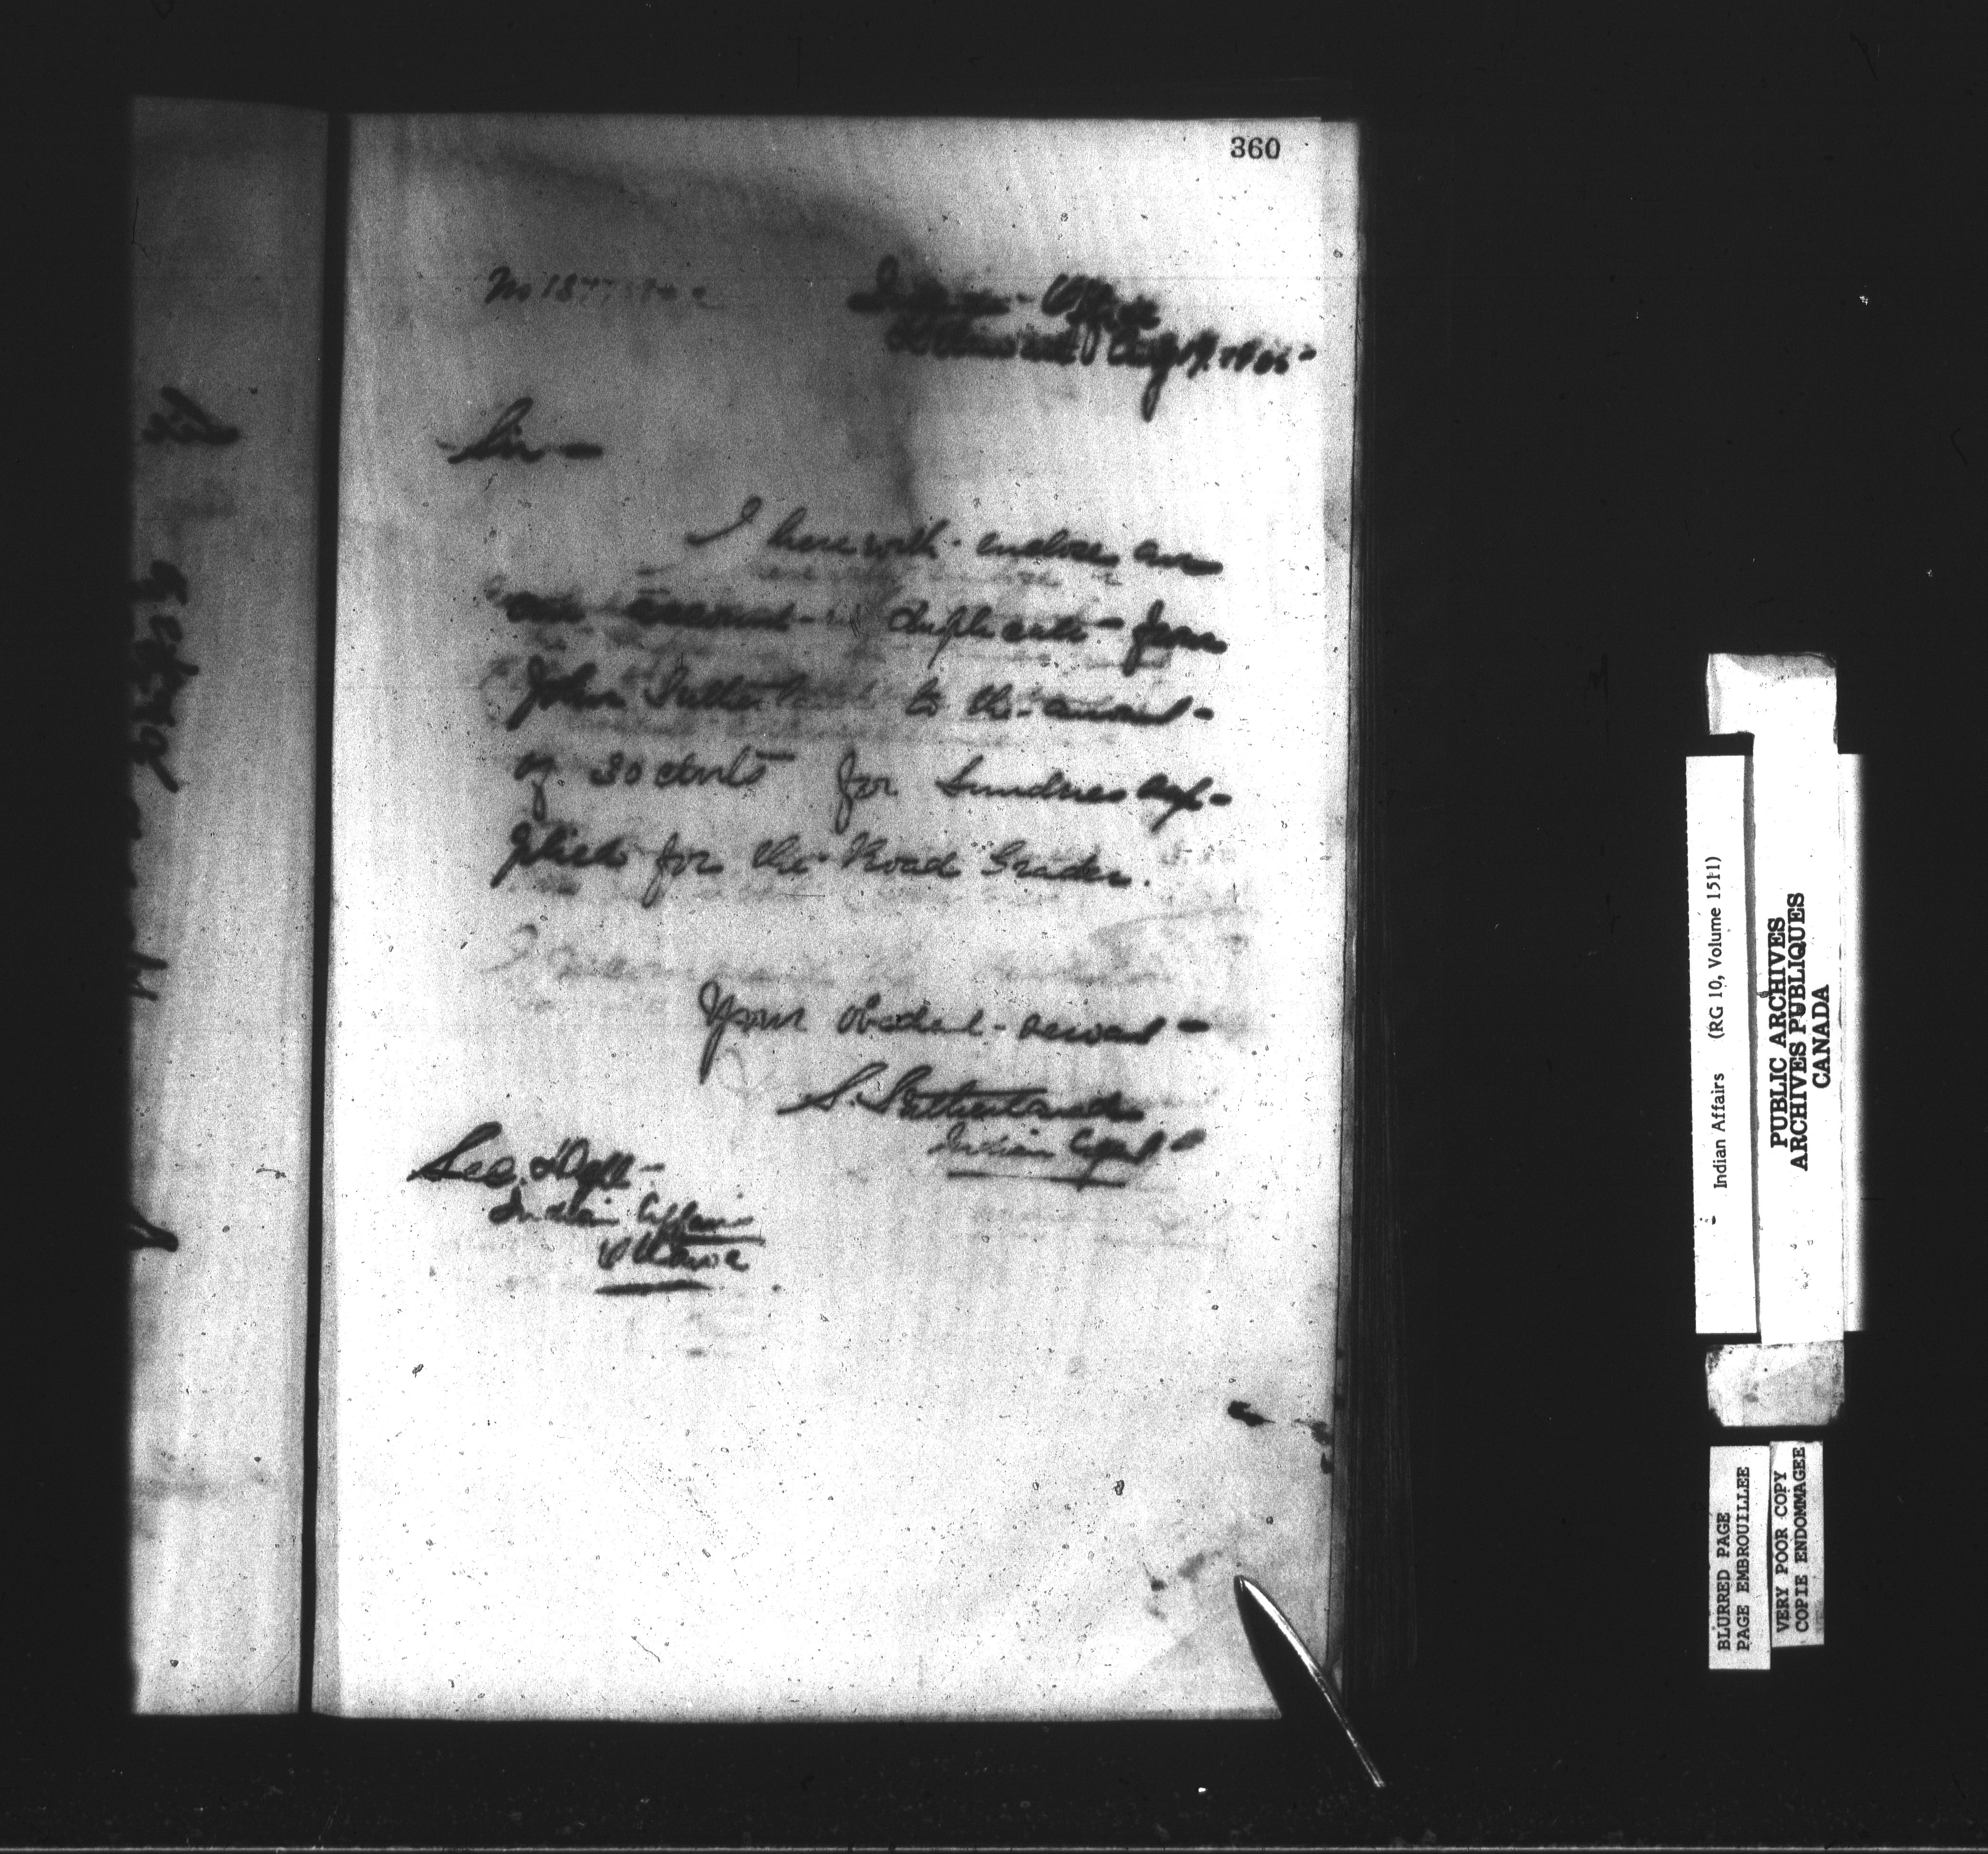 360
No 1877
Indian Office
Aug 19. 1905
Sir -
I herewith enclose an
account - duplicate - from
John to the amount -
of 30 cents for Sundries sup-
plied for the Road Grader.
Your obedient - servant -
S. Sutherland
Indian Agent
Sec. Dept -
Indian Affairs
Ottawa
Indian Affairs (RG 10, Volume 1511)
PUBLIC ARCHIVES
ARCHIVES PUBLIQUES
CANADA
BLURRED PAGE
PAGE EMBROUILLEE
VERY POOR COPY
COPIE ENDOMMAGEE